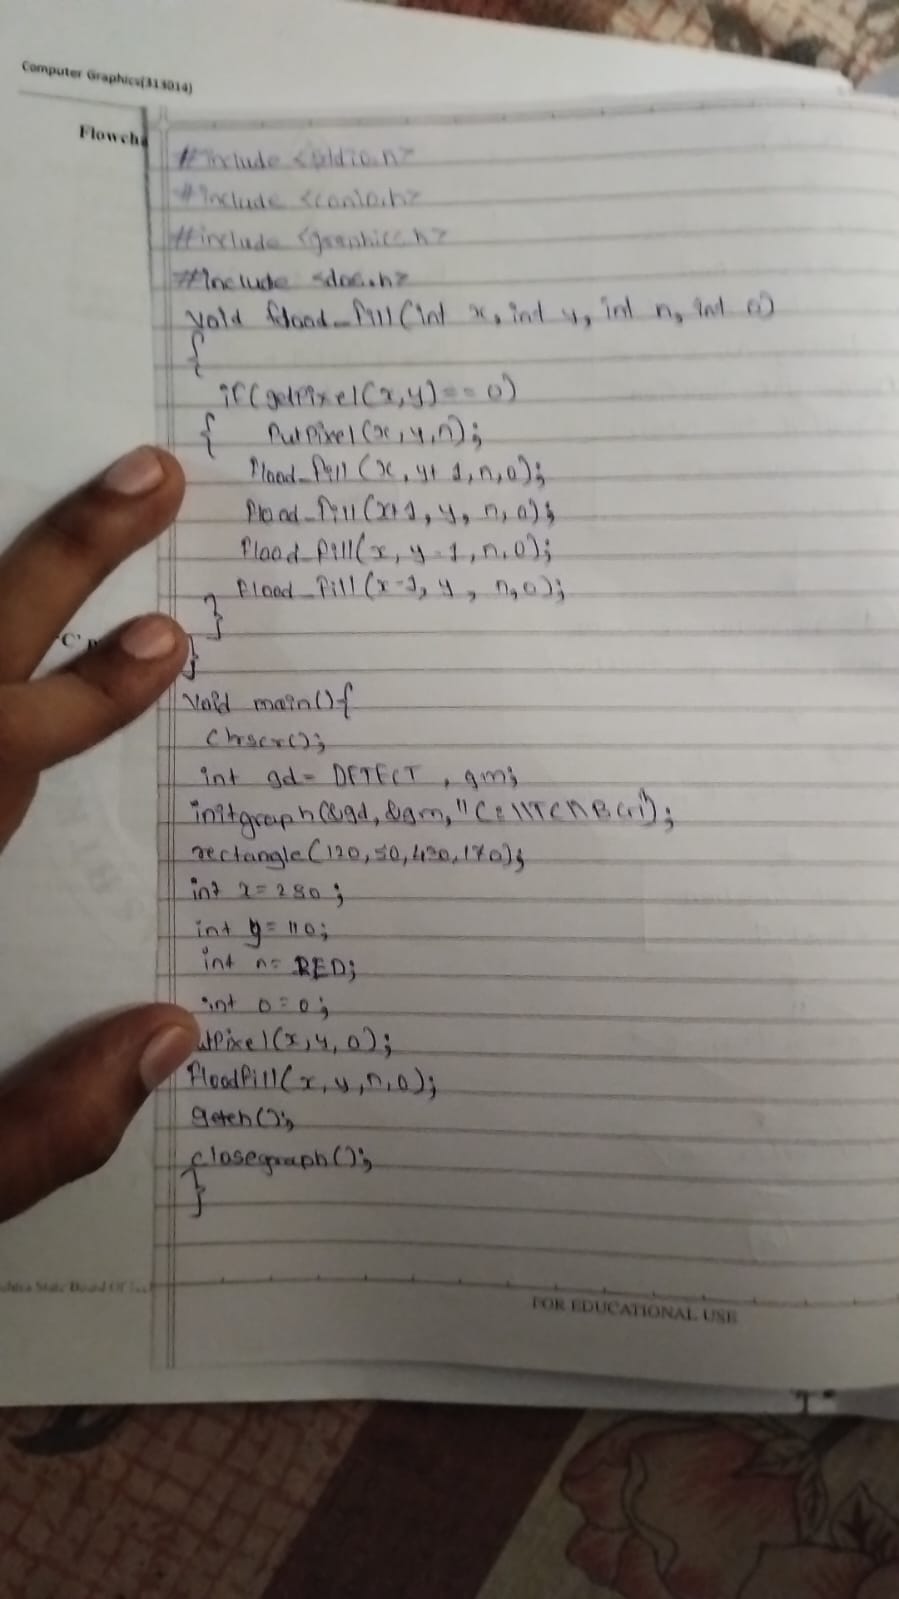 Computer Graphics(313014)
Flowcha
#include <stdio.h>
#include <conio.h>
#include <graphics.h>
#include <dos.h>
void flood_fill(int x, int y, int n, int o)
{
if(getPixel(x,y)==0)
{ PutPixel(x,y,n);
flood_fill(x, y+1,n,o);
flood_fill(x+1, y, n, o);
flood_fill(x, y-1, n, o);
flood_fill(x-1, y, n,o);
}
'C'
}
void main(){
clrscr();
int gd= DETECT, gm;
initgraph(&gd, &gm,
rectangle(120,50,430,170);
int x=280;
int y=110;
int n= RED;
int o=0;
utPixel(x,y,o);
floodfill(x,y,n,o);
getch();
closegraph();
}
State Board Of
FOR EDUCATIONAL USE